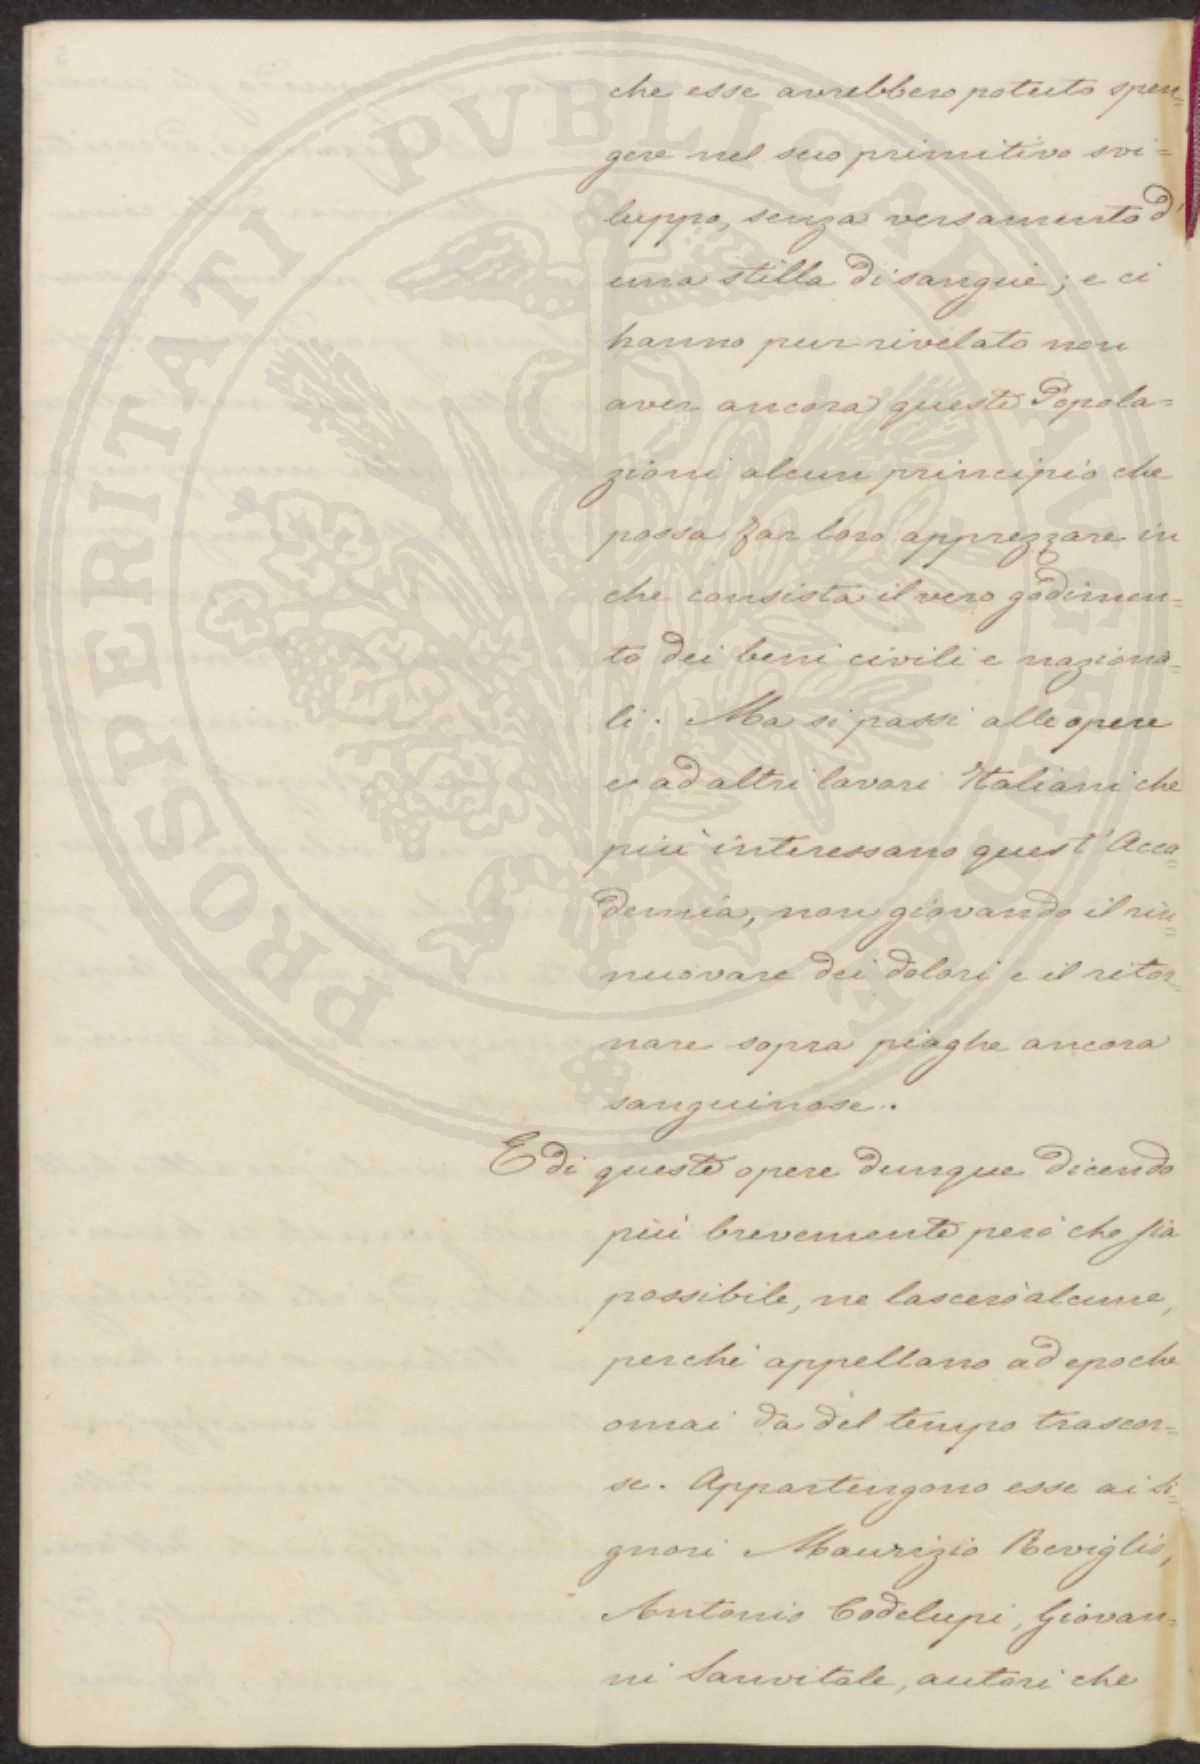 che esse avrebbero potuto spen=
gere nel suo primitivo svi=
luppo, senza versamento d'
una stilla di sangue; e ci
hanno pur rivelato non
aver ancora queste Popola=
zioni alcun principio che
possa far loro apprezzare in
che consista il vero godimen=
to dei beni civili e naziona=
li. Ma si passi alle opere
e ad altri lavori Italiani che
più interessano quest'Acca=
demia, non giovando il rin=
nuovare dei dolori e il ritor=
nare sopra piaghe ancora
sanguinose.
E di queste opere dunque dicendo
più brevemente però che sia
possibile, ne lascerò alcune,
perchè appellano ad epoche
omai da del tempo trascor=
se. Appartengono esse ai Si=
gnori Maurizio Reviglio,
Antonio Codelupi, Giovan=
ni Sanvitale, autori che
PROSPERITATI PVBLICAE AVGENDAE